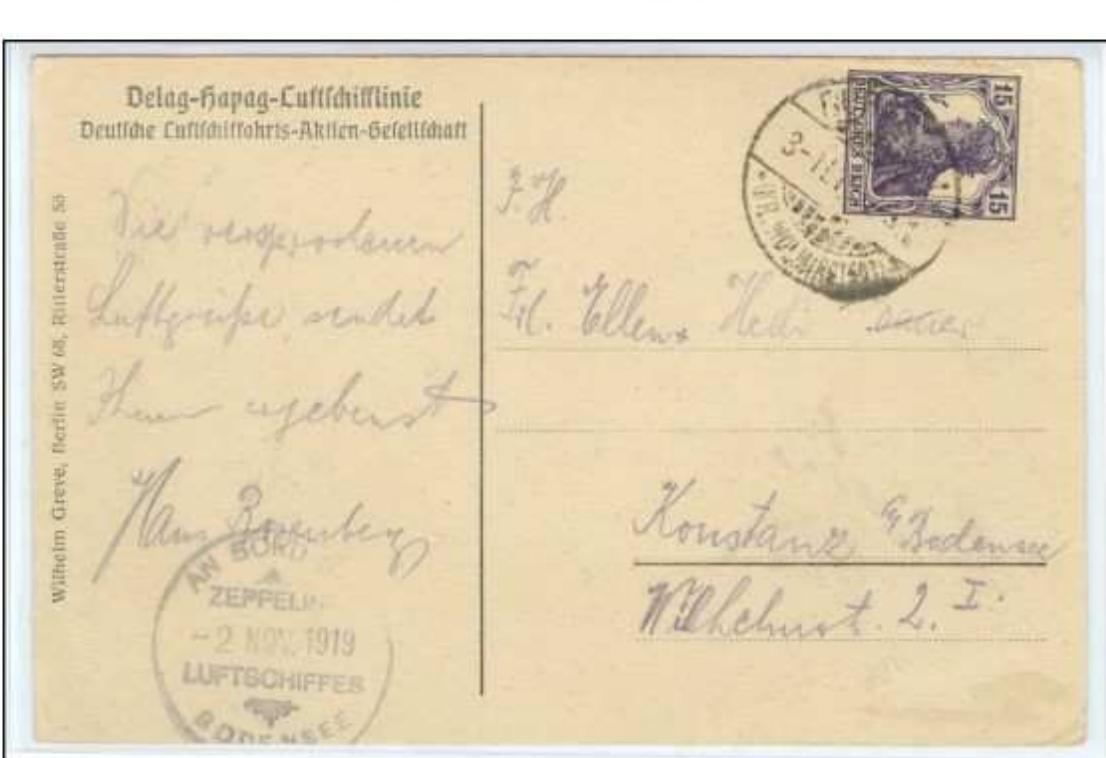 Delag-Hapag-Luftschifflinie
Deutsche Luftschiffahrts-Aktien-Gesellschaft
Wilhelm Greve, Berlin SW 68, Ritterstraße 50
Die versprochenen
Luftgrüße sendet
Ihnen ergebenst
Hans Rosenberg
AN BORD
ZEPPELIN
-2 NOV. 1919
LUFTSCHIFFES
BODENSEE
15 DEUTSCHES REICH 15
3-11
Frl. Ellen + Hedi
Konstanz a/Bodensee
Wilhelmst. 2. I.